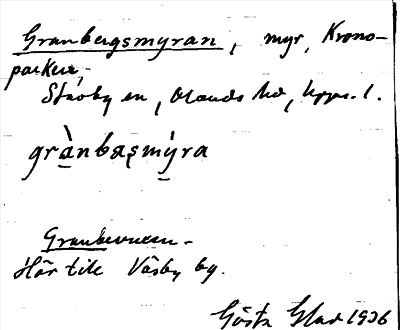 Granbergsmyran, myr, Krono-
parken,
Stavby sn, Olands hd, Upps. l.
grànbasmýra
Hör till Väsby by.
Gösta Glad 1936